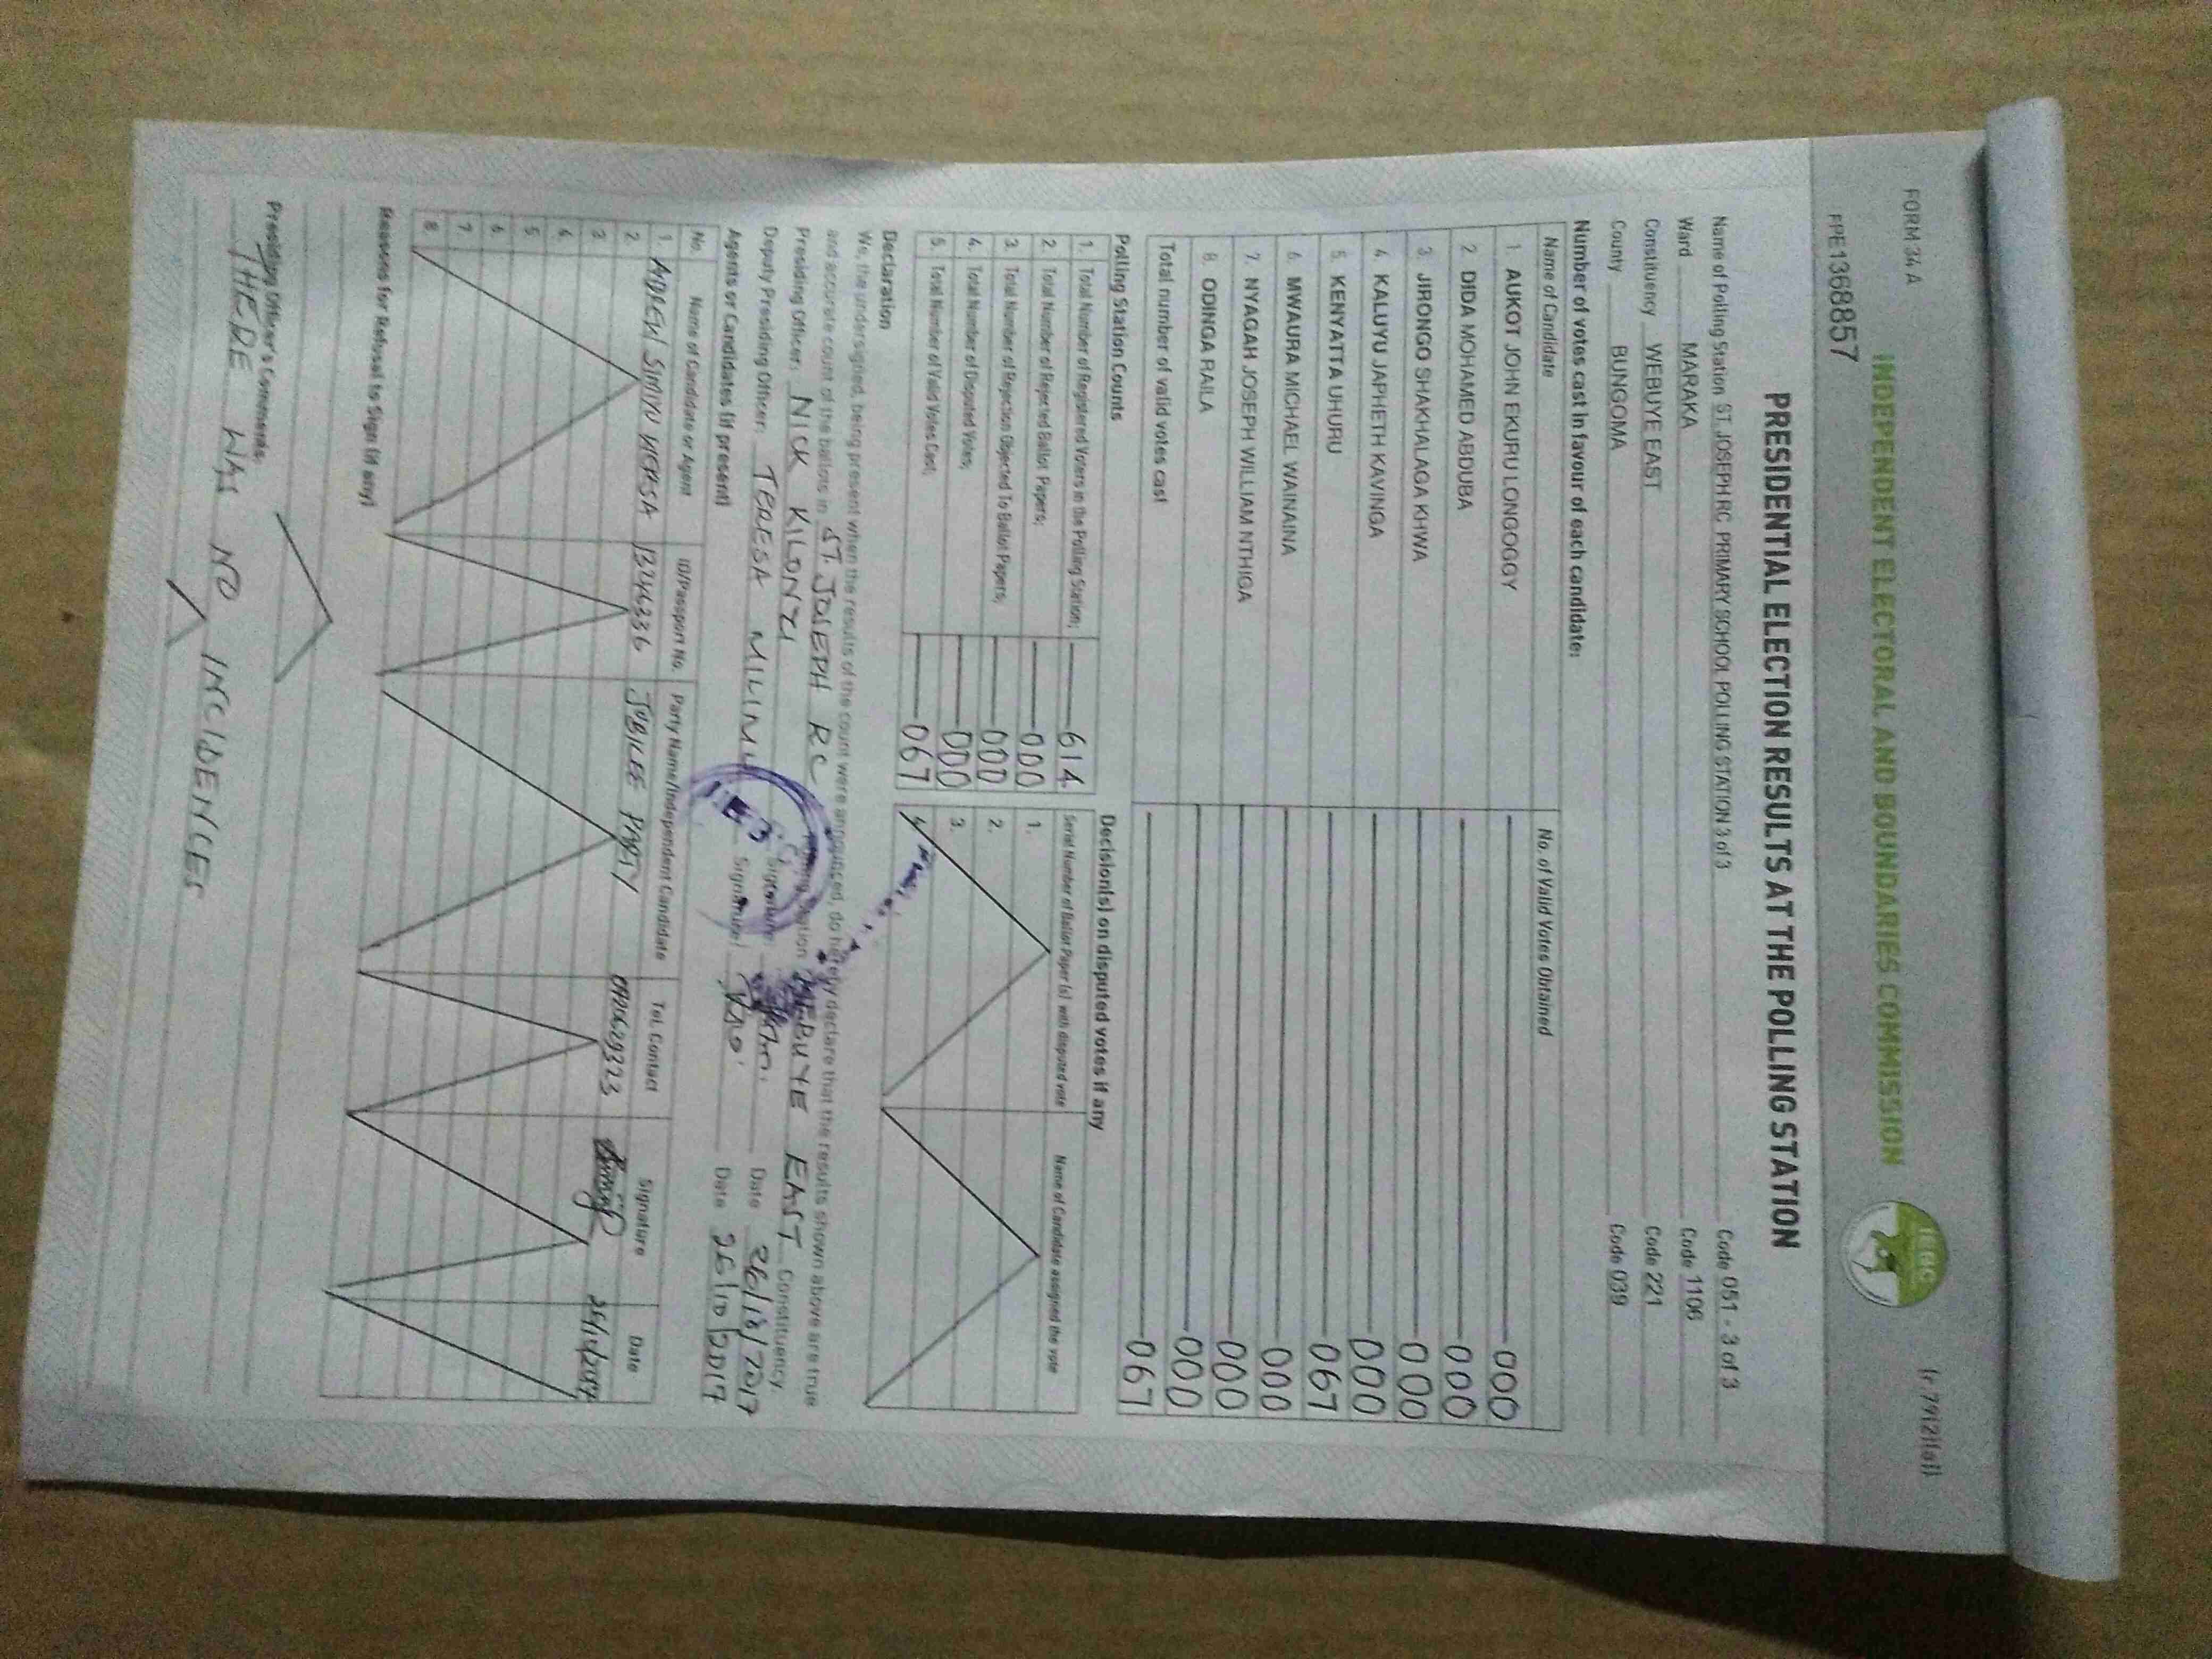 FORM 34 A
(r.79(2)(a))
INDEPENDENT ELECTORAL AND BOUNDARIES COMMISSION
IEBC
PPE1368857
PRESIDENTIAL ELECTION RESULTS AT THE POLLING STATION
Name of Polling Station ST. JOSEPH RC PRIMARY SCHOOL POLLING STATION 3 of 3 Code 051 - 3 of 3
Ward MARAKA Code 1106
Constituency WEBUYE EAST Code 221
County BUNGOMA Code 039
Number of votes cast in favour of each candidate:
Name of Candidate No. of Valid Votes Obtained
1. AUKOT JOHN EKURU LONGOGGY 000
2. DIDA MOHAMED ABDUBA 000
3. JIRONGO SHAKHALAGA KHWA 000
4. KALUYU JAPHETH KAVINGA 000
5. KENYATTA UHURU 067
6. MWAURA MICHAEL WAINAINA 000
7. NYAGAH JOSEPH WILLIAM NTHIGA 000
8. ODINGA RAILA 000
Total number of valid votes cast 067
Polling Station Counts
1. Total Number of Registered Voters in the Polling Station; 614
2. Total Number of Rejected Ballot Papers; 000
3. Total Number of Rejection Objected To Ballot Papers; 000
4. Total Number of Disputed Votes; 000
5. Total Number of Valid Votes Cast; 067
Decision(s) on disputed votes if any
Serial Number of Ballot Paper(s) with disputed vote Name of Candidate assigned the vote
1.
2.
3.
4.
Declaration
We, the undersigned, being present when the results of the count were announced, do hereby declare that the results shown above are true
and accurate count of the ballots in ST. JOSEPH RC Polling Station WEBUYE EAST Constituency.
Presiding Officer: NICK KILONZI Signature Date 26/10/2017
Deputy Presiding Officer: TERESA MILIMU Signature Date 26/10/2017
Agents or Candidates (if present)
No. Name of Candidate or Agent ID/Passport No. Party Name/Independent Candidate Tel. Contact Signature Date
1. SIMIYU 13246336 JUBILEE PARTY 26/10/2017
2.
3
4.
5
6.
7
8.
Reasons for Refusal to Sign (if any)
Presiding Officer's Comments:
THERE WAS NO INCIDENCES